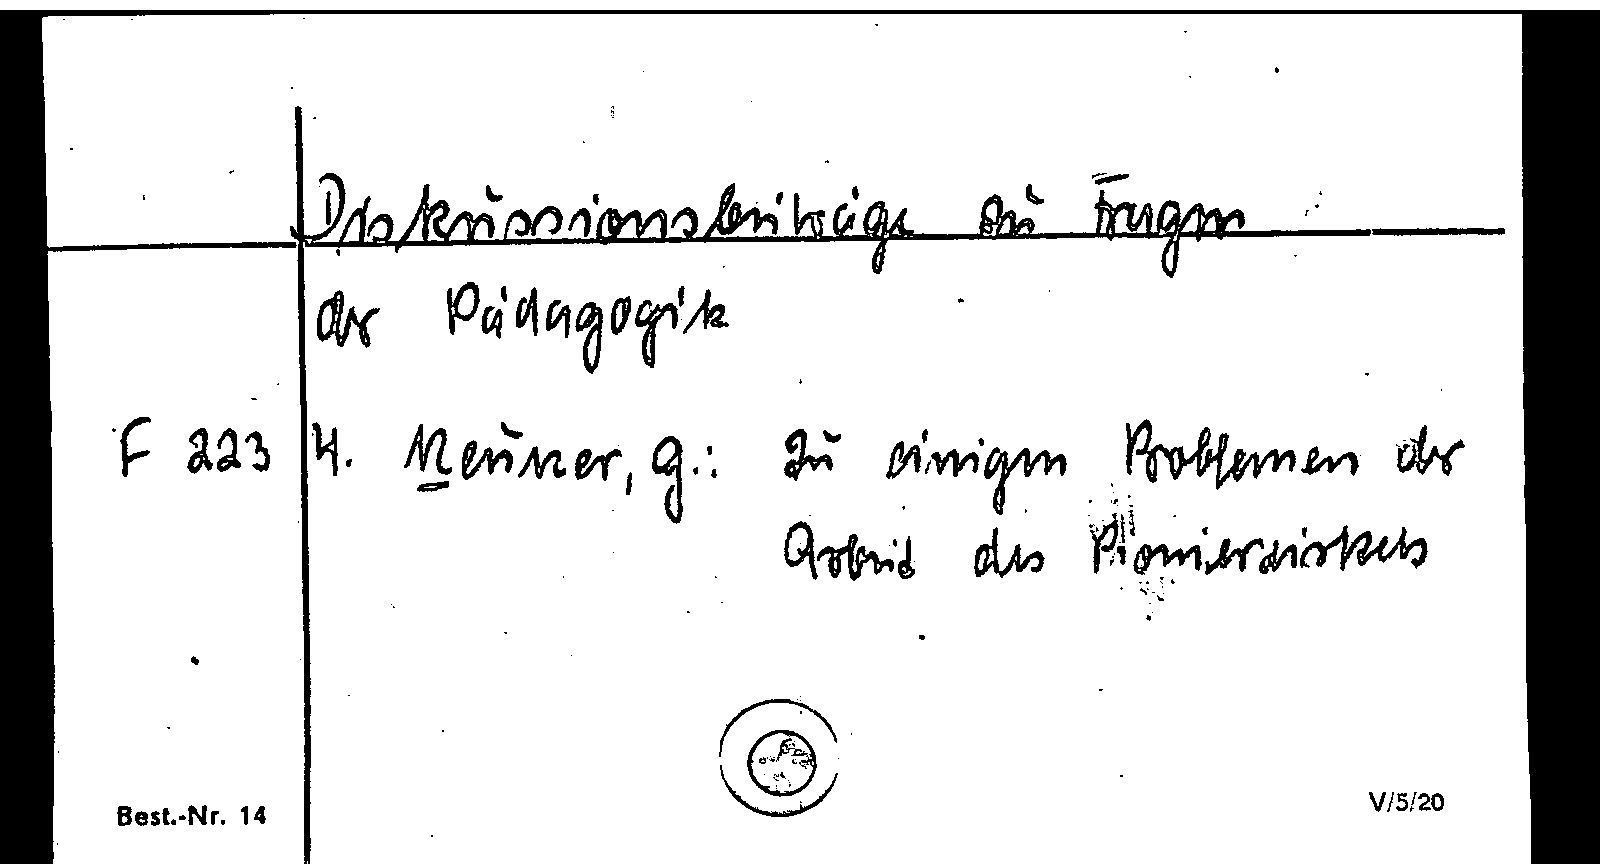 Diskussionsbeiträge zu Fragen
der Pädagogik
F 223 4. Neuner, G.: Zu einigen Problemen der
Arbeit des Pionierzirkels
Best.-Nr. 14 V/5/20